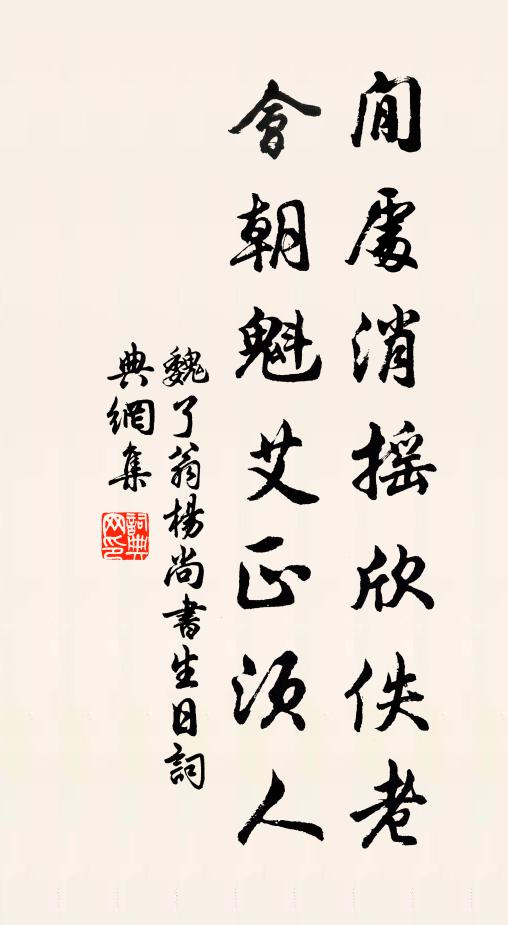 閒處消搖欣佚老
會朝魁艾正須人
魏了翁楊尚書生日詞
典網集
詞典網印